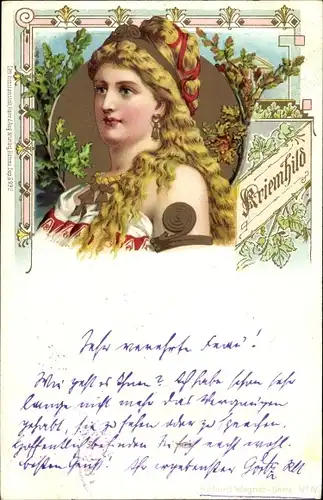 Kriemhild
Sehr verehrte Frau!
Wie geht es Ihnen? Ich habe schon sehr
lange nicht mehr das Vergnügen
gehabt, Sie zu sehen oder zu sprechen.
Hoffentlich befinden Sie sich noch wohl.
besten Gruß! Ihr ergebenster